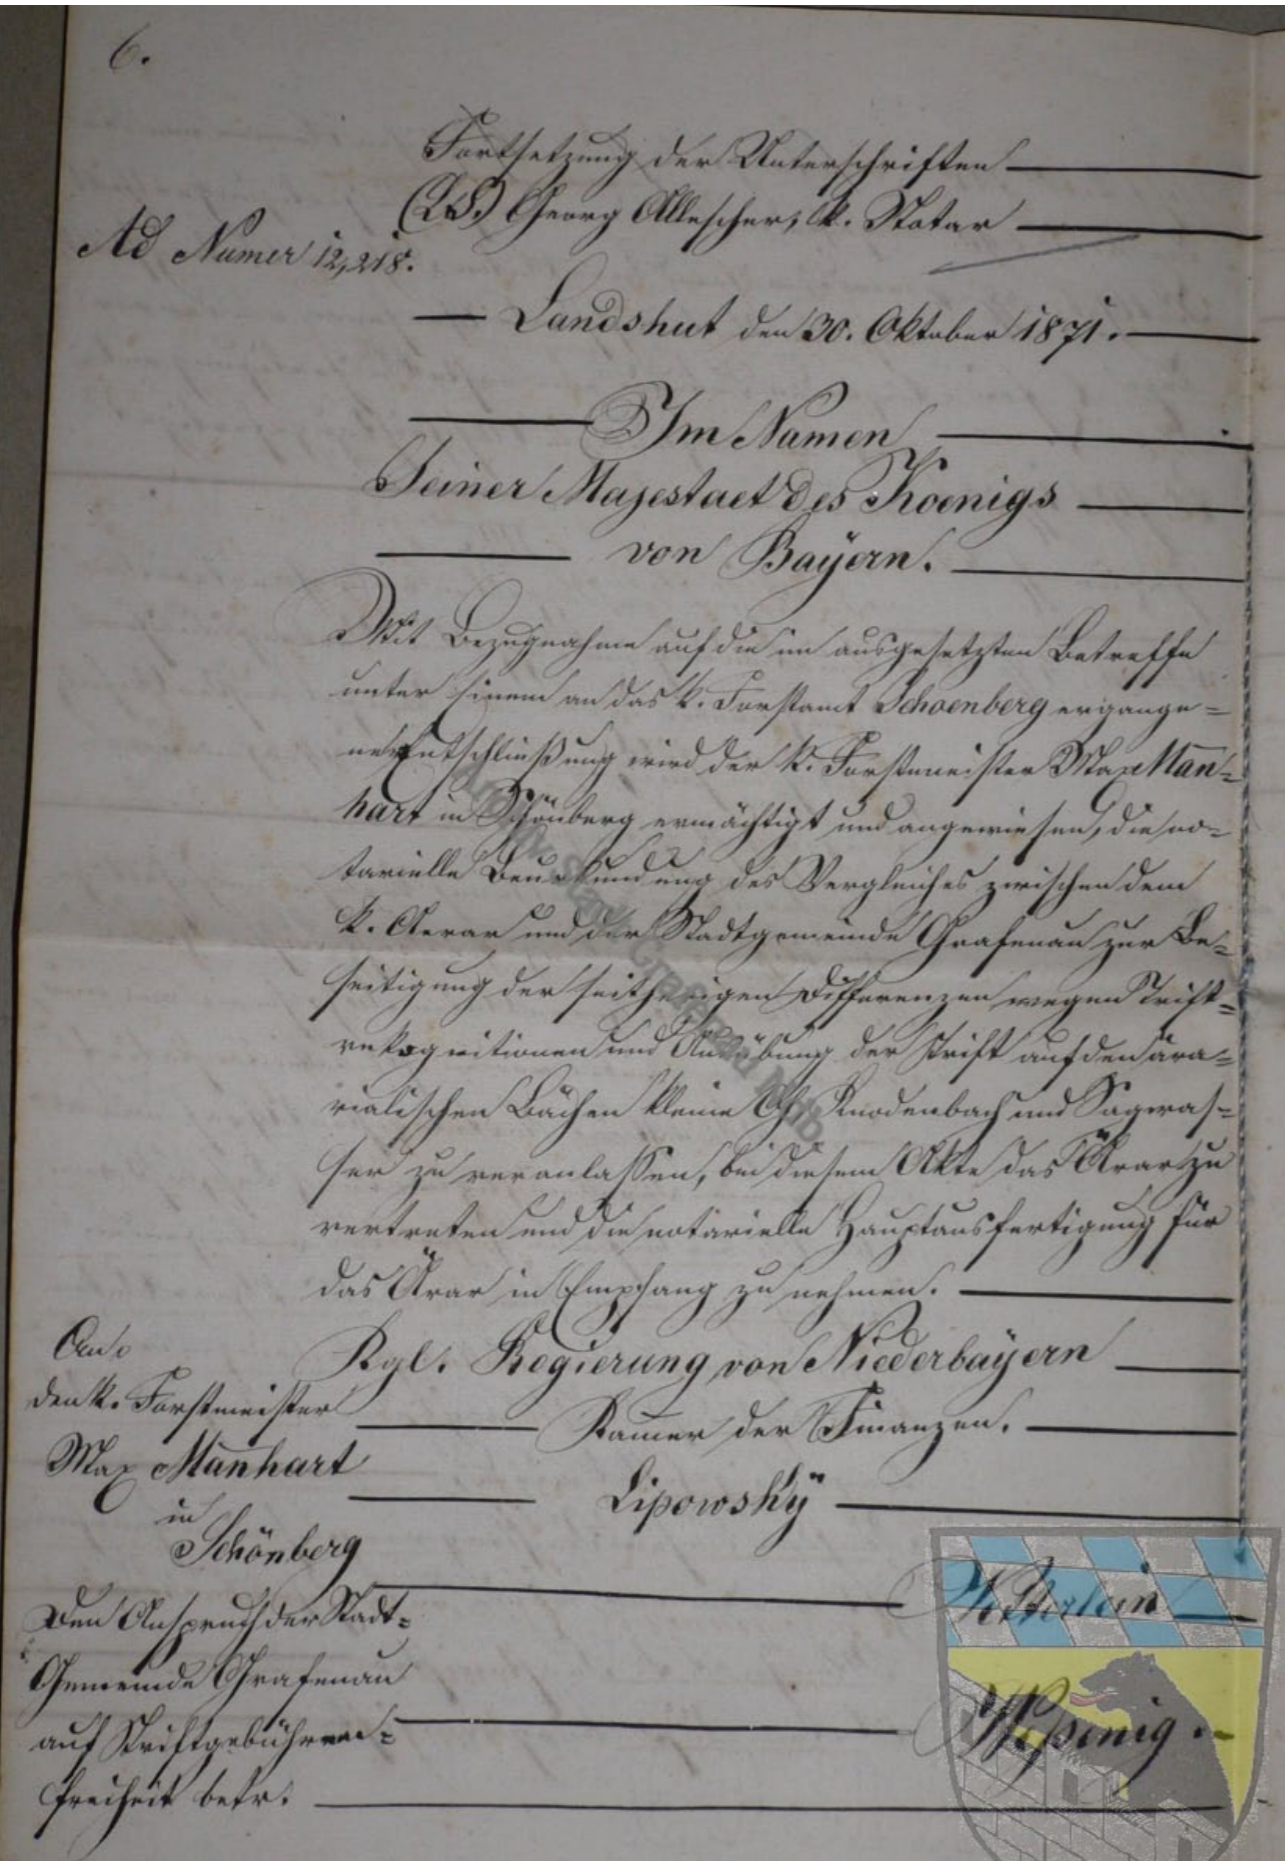 6.
Fortsetzung der Unterschriften
(L.S.) Georg Allescher, k. Notar
Ad Numer 12,218.
Landshut den 30. Oktober 1871.
Im Namen
Seiner Majestaet des Koenigs
von Bayern.
Mit Bezugnahme auf die im ausgesetzten Betreffe
unter einem an das k. Forstamt Schoenberg ergange=
ne Entschließung wird der k. Forstmeister Max Man̄=
hart in Schönberg ermächtigt und angewiesen, die no=
tarielle Beurkundung des Vergleiches zwischen dem
k. Aerar und der Stadtgemeinde Grafenau zur Be=
seitigung der seitherigen Differenzen wegen Trift=
rekognitionen und Ausübung der Trift auf den ära=
rialischen Bächen kleine Ohe, Knodenbach und Sagwas=
ser zu veranlassen, bei diesem Akte das Ärar zu
vertreten und die notarielle Hauptausfertigung für
das Ärar in Empfang zu nehmen.
Kgl. Regierung von Niederbayern
Kam̄er der Finanzen.
Lipowsky
An
den k. Forstmeister
Max Man̄hart
in
Schönberg
Den Anspruch der Stadt=
Gemeinde Grafenau
auf Triftgebühren=
freiheit betr.